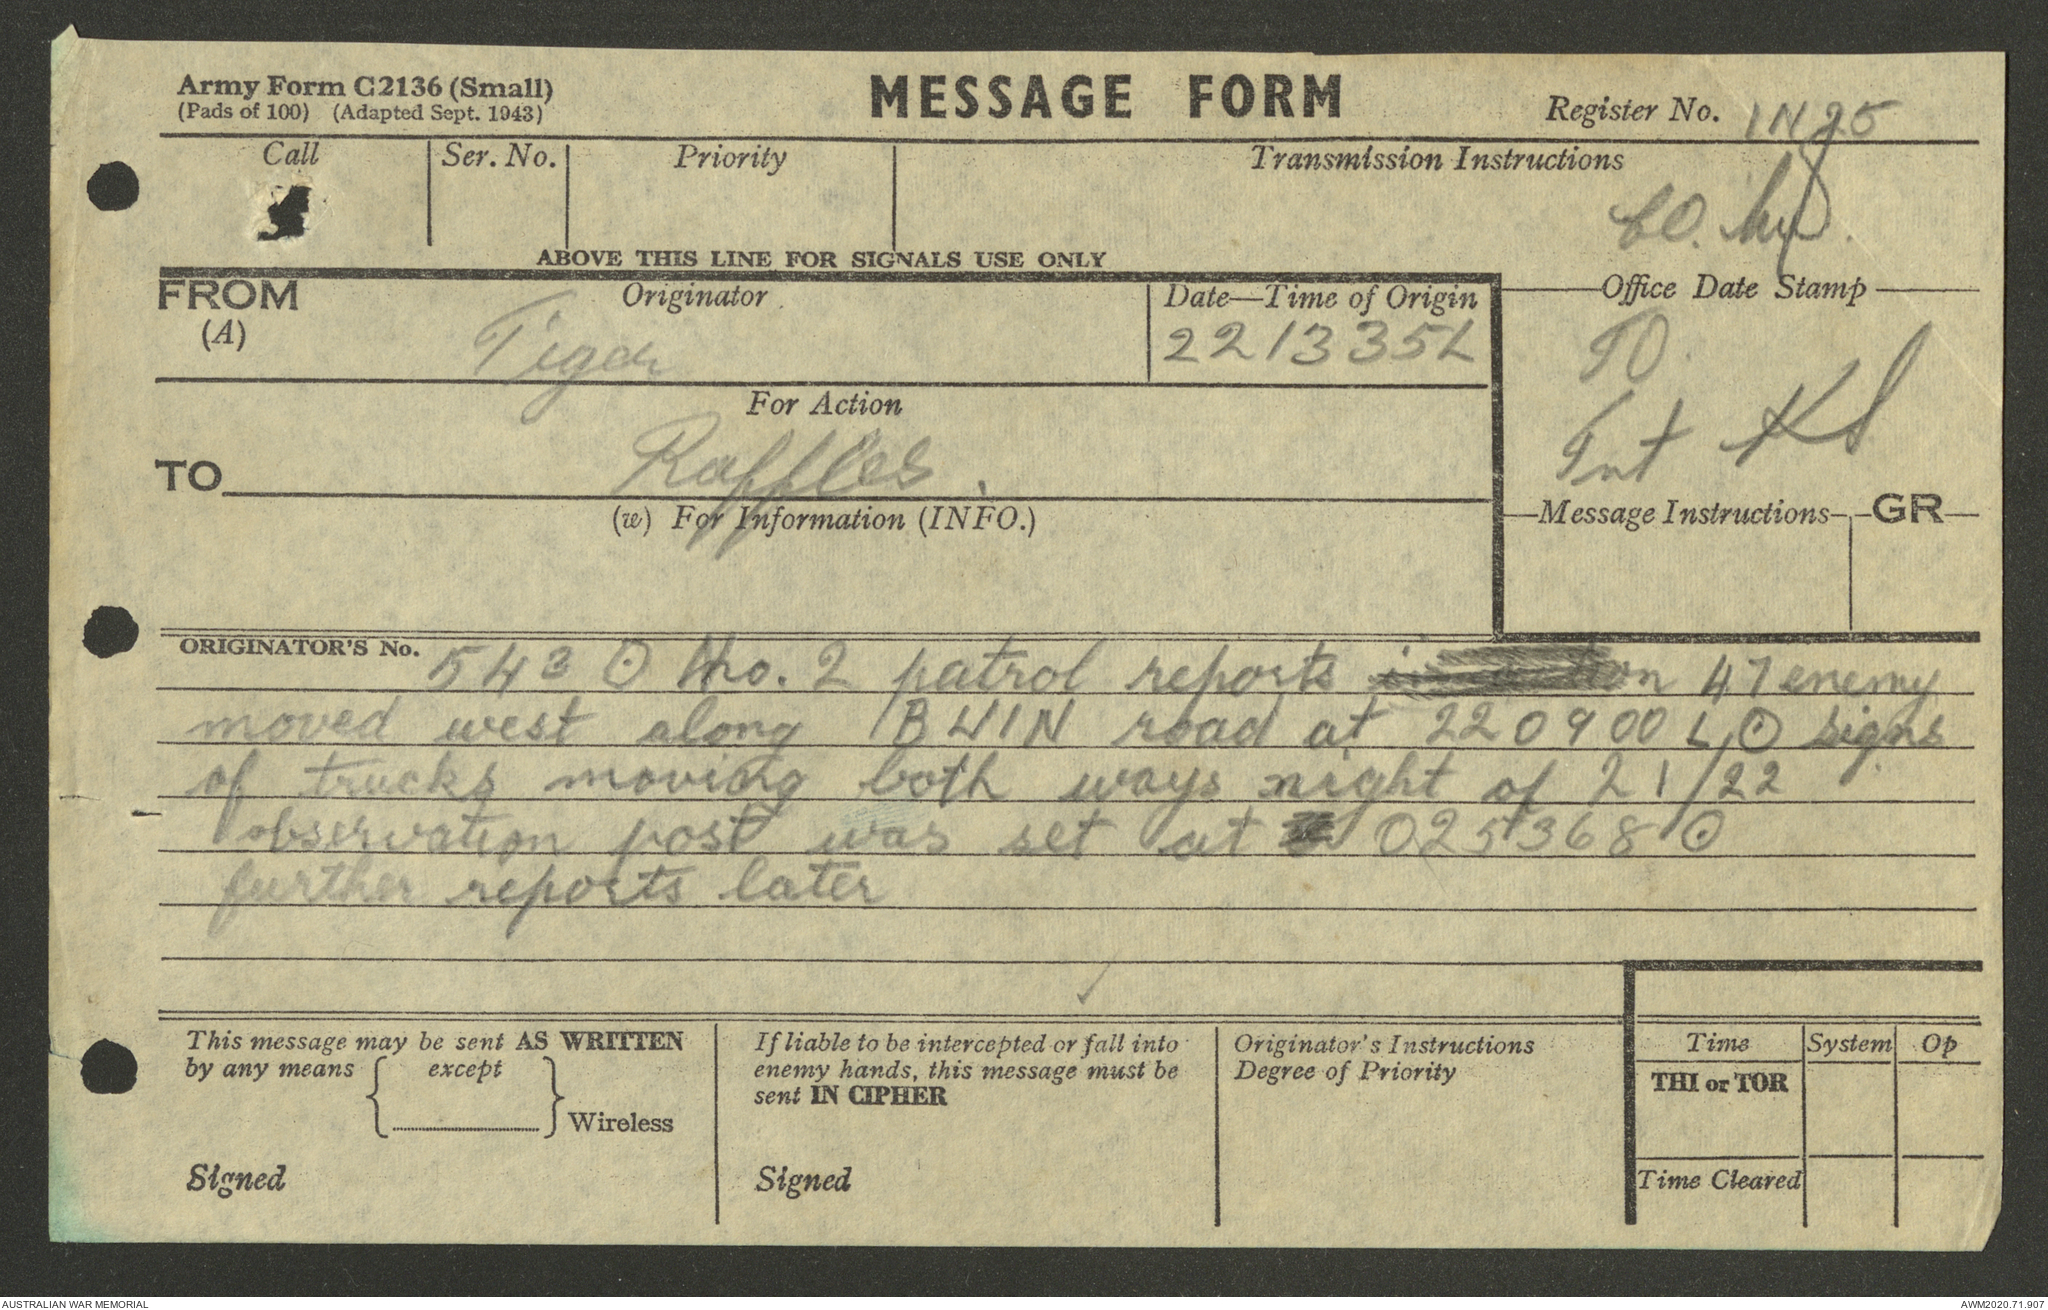 Army Form C2136 (Small)
(Pads of 100) (Adapted Sept. 1943)
MESSAGE FORM
Register No. IN 25
Call
Ser. No.
Priority
Transmission Instructions
CO.
ABOVE THIS LINE FOR SIGNALS USE ONLY
FROM
(A)
Originator
Tiger
Date—Time of Origin
221335L
Office Date Stamp
IO.
Int
For Action
TO
Raffles.
(w) For Information (INFO.)
Message Instructions
GR
ORIGINATOR'S No.
543 ⊙ No. 2 patrol reports 47 enemy
moved west along BUIN road at 220900L ⊙ signs
of trucks moving both ways night of 21/22
observation post was set at 025368 ⊙
further reports later
This message may be sent AS WRITTEN
by any means except
Wireless
Signed
If liable to be intercepted or fall into
enemy hands, this message must be
sent IN CIPHER
Signed
Originator's Instructions
Degree of Priority
Time System Op
THI or TOR
Time Cleared
AUSTRALIAN WAR MEMORIAL
AWM2020.71.907